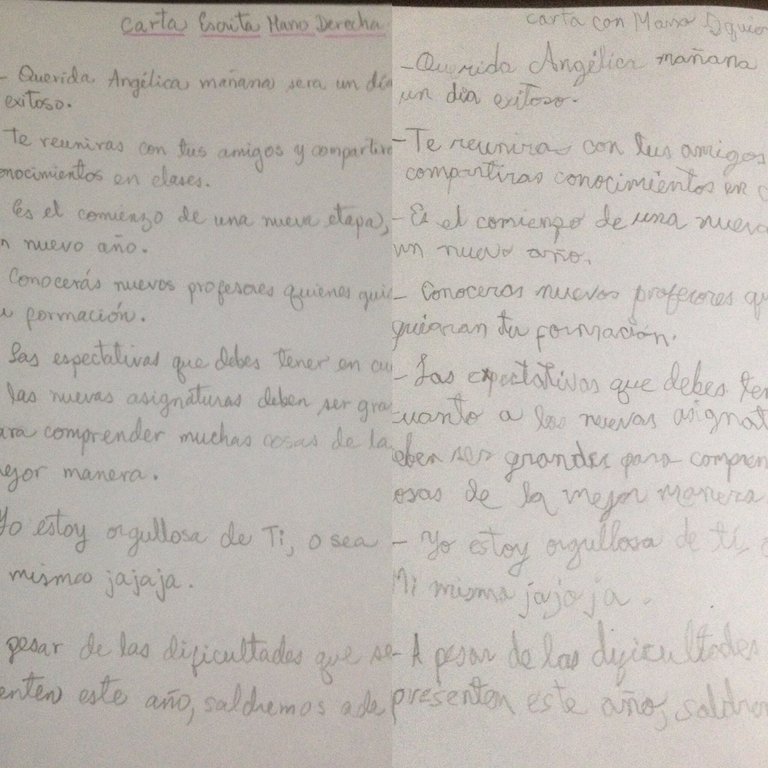 Carta Escrita Mano Derecha
- Querida Angélica mañana sera un día
exitoso.
Te reuniras con tus amigos y compartira
onocimientos en clases.
Es el comienzo de una nueva etapa,
n nuevo año.
Conocerás nuevos profesores quienes guia
u formación.
Las espectativas que debes tener en cu
las nuevas asignaturas deben ser gra
ara comprender muchas cosas de la
mejor manera.
Yo estoy orgullosa de Ti, o sea
mismo jajaja.
pesar de las dificultades que se
enten este año, saldremos ade
carta con Mano
- Querida Angélica mañana
un día exitoso.
- Te reunira con tus amigos
compartiras conocimientos en c
- Es el comienzo de una nueva
un nuevo año.
- Conoceras nuevos profesores qu
guiaran tu formación.
- Las expectativas que debes ten
cuanto a las nuevas asignat
eben ser grandes para compren
osas de la mejor manera
- Yo estoy orgullosa de tí,
Mi misma jajaja.
- A pesar de las dificultades
presenten este año, saldrem